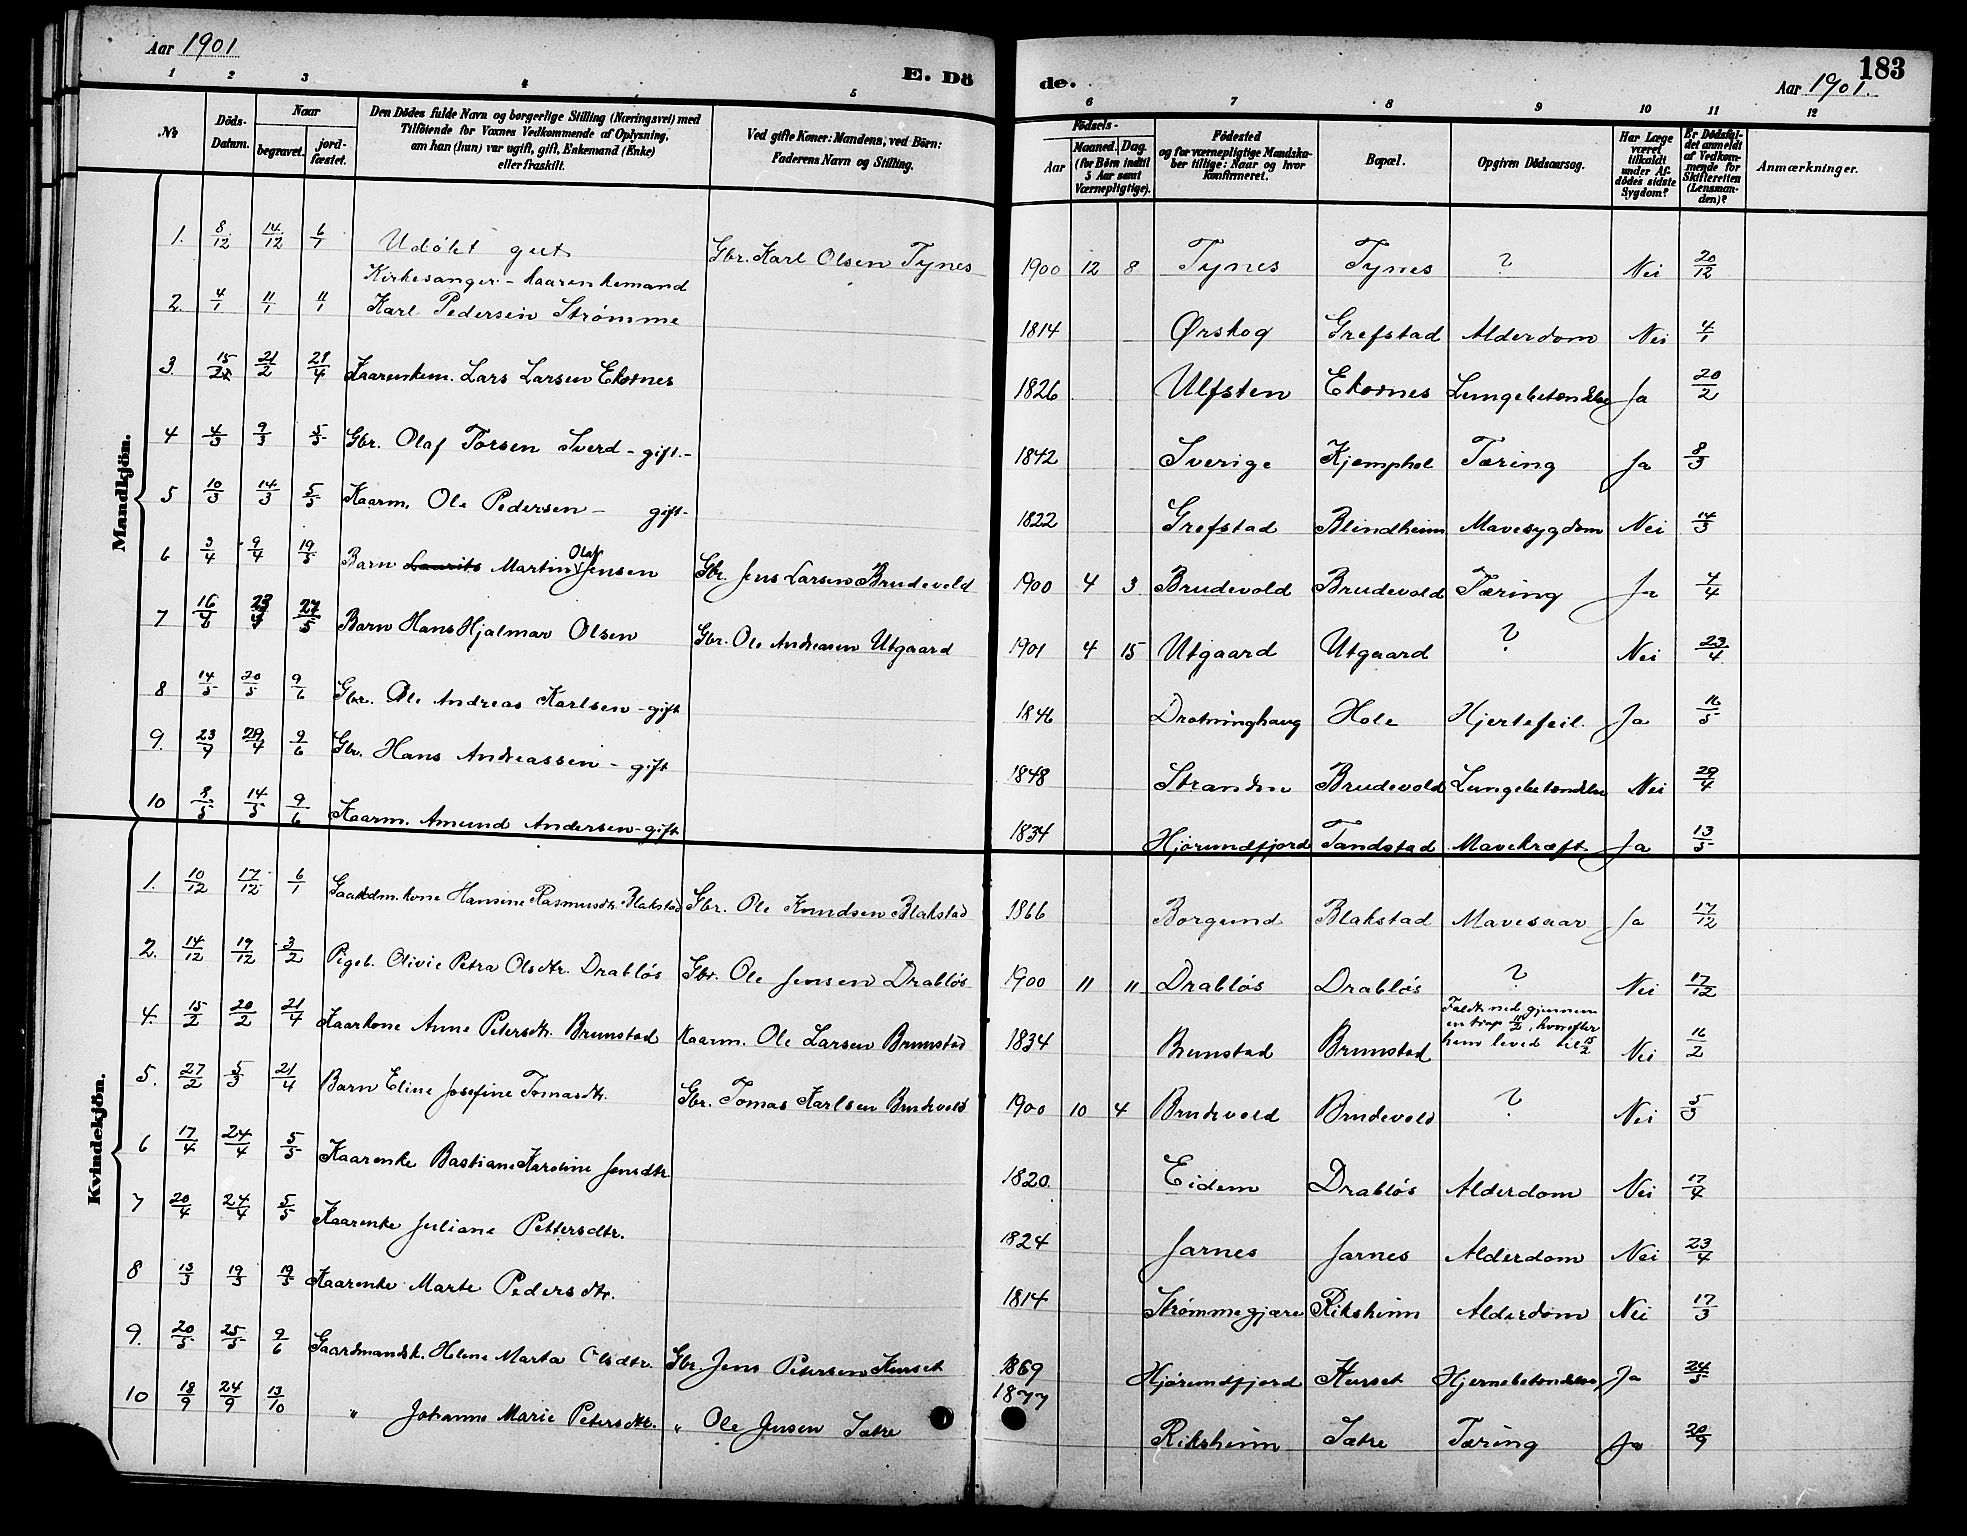 Aar 1901
E. Dö
de.
Aar 1901.
183
1 2 3 4 5 6 7 8 9 10 11 12
No
Döds-
Datum.
Naar
begravet.
jord-
fæstet.
Den Dödes fulde Navn og borgerlige Stilling (Næringsvei) med
Tilföiende for Voxnes Vedkommende af Oplysning,
om han (hun) var ugift, gift, Enkemand (Enke)
eller fraskilt.
Ved gifte Koner: Mandens, ved Börn:
Faderens Navn og Stilling.
Födsels-
Aar
Maaned. Dag.
(for Börn indtil
5 Aar samt
Værnepligtige).
Födested
og for værnepligtige Mandska-
ber tillige: Naar og hvor
konfirmeret.
Bopæl.
Opgiven Dödsaarsag.
Har Læge
været
tilkaldt
under Af-
dödes sidste
Sygdom?
Er Dödsfal-
det anmeldt
af Vedkom-
mende for
Skifteretten
(Lensman-
den)?
Anmærkninger.
Mandkjön.
1. 8/12 14/12 6/1 Udøbt gut Gbr. Karl Olsen Tynes 1900 12 8 Tynes Tynes ? Nei 20/12
Kirkesanger - kaarenkemand
2. 4/1 11/1 11/1 Karl Pedersen Strømme 1814 Ørskog Grefstad Alderdom Nei 4/1
3. 15/2 21/2 21/4 Kaarenkem. Lars Larsen Ekornes 1826 Ulfsten Ekornes Lungebetændelse Ja 20/2
4 4/3 9/3 5/5 Gbr. Olaf Torsen Sverd - gift. - 1842 Sverige Kjemphol Tæring Ja 8/3
5 10/3 14/3 5/5 Kaarm. Ole Pedersen - gift - 1822 Grefstad Blindheim Mavesygdom Nei 14/3
6 3/4 9/4 19/5 Barn Laurits Martin Olaf Jensen Gbr. Jens Larsen Brudevold 1900 4 3 Brudevold Brudevold Tæring Ja 4/4
7 16/4 23/4 27/5 Barn Hans Hjalmar Olsen Gbr. Ole Andreasen Utgaard 1901 4 15 Utgaard Utgaard ? Nei 23/4
8 14/5 20/5 9/6 Gbr. Ole Andreas Karlsen - gift 1846 Drotninghaug Hole Hjertefeil. Ja 16/5
9. 23/4 29/4 9/6 Gbr. Hans Andreassen - gift 1848 Stranden Brudevold Lungebetændelse Nei 29/4
10 8/5 14/5 9/6 Kaarm. Amund Andersen - gift 1834 Hjørundfjord Tandstad Mavekræft Ja 13/5
Kvindekjön.
1. 10/12 17/12 6/1 Gaardm.kone Hansine Rasmusdtr. Blakstad Gbr. Ole Knudsen Blakstad 1866 Borgund Blakstad Mavesaar Ja 17/12
2. 14/12 19/12 3/2 Pigeb. Olivie Petra Olsdtr. Drabløs Gbr. Ole Jensen Drabløs 1900 11 11 Drabløs Drabløs ? Nei 17/12
4. 15/2 20/2 21/4 Kaarkone Anne Petersdtr. Brunstad Kaarm. Ole Larsen Brunstad 1834 Brunstad Brunstad Faldt ned gjennem
en trap 11/2, hvorefter
hun leved til 15/2 Nei 16/2
5. 27/2 5/3 21/4 Barn Eline Josefine Tomasdtr. Gbr. Tomas Karlsen Brudevold 1900 10 4 Brudevold Brudevold ? Nei 5/3
6 17/4 24/4 5/5 Kaarenke Bastiane Karoline Jensdtr 1820. Eidem Drabløs Alderdom Nei 17/4
7 20/4 24/4 5/5 Kaarenke Juliane Pettersdtr. 1824 Jarnes Jarnes Alderdom Nei 23/4
8 13/3 19/3 19/5 Kaarenke Marte Pedersdtr. 1814 Strømmegjære Riksheim Alderdom Nei 17/3
9. 20/5 25/5 9/6 Gaardmandsk. Heline Marta Olsdtr. Gbr. Jens Petersen Kurset 1869 Hjørundfjord Kurset Hjernebetændelse Ja 24/5
10 18/9 24/9 13/10 " Johanne Marie Petersdtr. " Ole Jensen Satre 1877 Riksheim Satre Tæring Ja 20/9